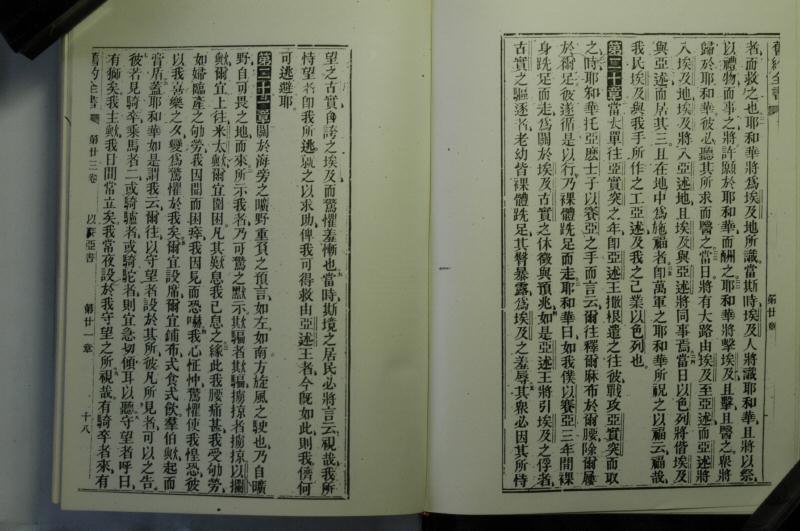 舊約全書
第廿章
者而救之也耶和華將爲埃及地所識當斯時埃及人將識耶和華且將以祭
以禮物而事之將許願於耶和華而酬之耶和華將擊埃及且擊且醫之衆將
歸於耶和華彼必聽其所求而醫之當日將有大路由埃及至亞述而亞述將
入埃及地埃及將入亞述地且埃及與亞述將同事焉當日以色列將偕埃及
與亞述而居其三且在地中爲施福者卽萬軍之耶和華所祝之以福云福哉
我民埃及與我手所作之工亞述及我之己業以色列也
第二十章當大單往亞實突之年卽亞述王撒根遣之往彼戰攻亞實突而取
之時耶和華托亞麽士子以賽亞之手而言云爾往釋爾麻布於爾腰除爾屨
於爾足彼遂循是以行乃裸體跣足而走耶和華曰如我僕以賽亞三年間裸
身跣足而走爲關於埃及古實之休徵與預兆如是亞述王將引埃及之俘者
古實之驅逐者老幼皆裸體跣足其臀暴露爲埃及之羞辱其衆必因其所恃
望之古實自誇之埃及而驚懼羞慚也當時斯境之居民必將言云視哉我所
恃望者卽我所逃就之以求助俾我可得救由亞述王者今旣如此則我儕何
可逃避耶
第二十一章關於海旁之曠野重負之預言如左如南方旋風之駛也乃自曠
野自可畏之地而來所示我者乃可驚之默示欺騙者欺騙擄掠者擄掠以攔
歟爾宜上往米太歟爾宜圍困凡其歎息我已息之緣此我腰痛甚我受劬勞
如婦臨產之劬勞我因聞而困瘁我因見而恐嚇我心怔忡驚懼使我惶恐彼
以我喜樂之夕變爲驚懼於我矣爾宜設席爾宜鋪布式食式飲羣伯歟起而
膏盾蓋耶和華如是謂我云爾往以守望者設於其所彼凡所見者可以之告
彼若見騎卒乘馬者二或騎驢者或騎駝者則宜急切傾耳以聽守望者呼曰
有獅矣我主歟我日間當立矣我當夜設於我守望之所視哉有騎卒者來有
舊約全書
第廿三卷
以賽亞書
第廿一章
十八